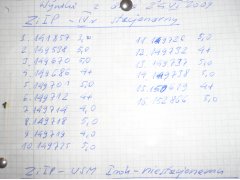 Wyniki z dnia 24.VI.2009
ZiIP - IV r stacjonarny
1. 141857 3,0
2. 149594 5,0
3. 149670 5,0
4. 149686 4+
5. 149701 5,0
6. 149712 4+
7. 149714 4,0
8. 149718 5,0
9. 149719 4,0
10. 149725 5,0
11. 149726 5,0
12. 149732 4+
13. 149737 5,0
14. 149738 5,0
15. 150619 4+
16. 152866 5,0
ZiIP - USM niestacjonarne